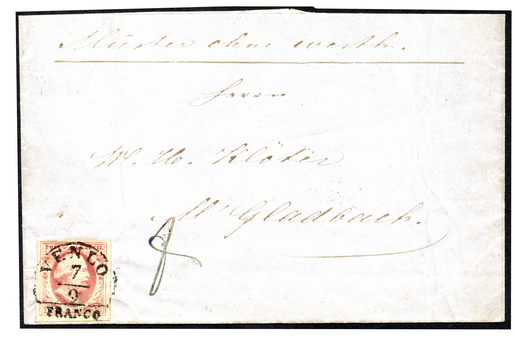 Muster ohne werth.
Herrn
W. H. Klöter
M' Gladbach.
VENLO
7
9
FRANCO